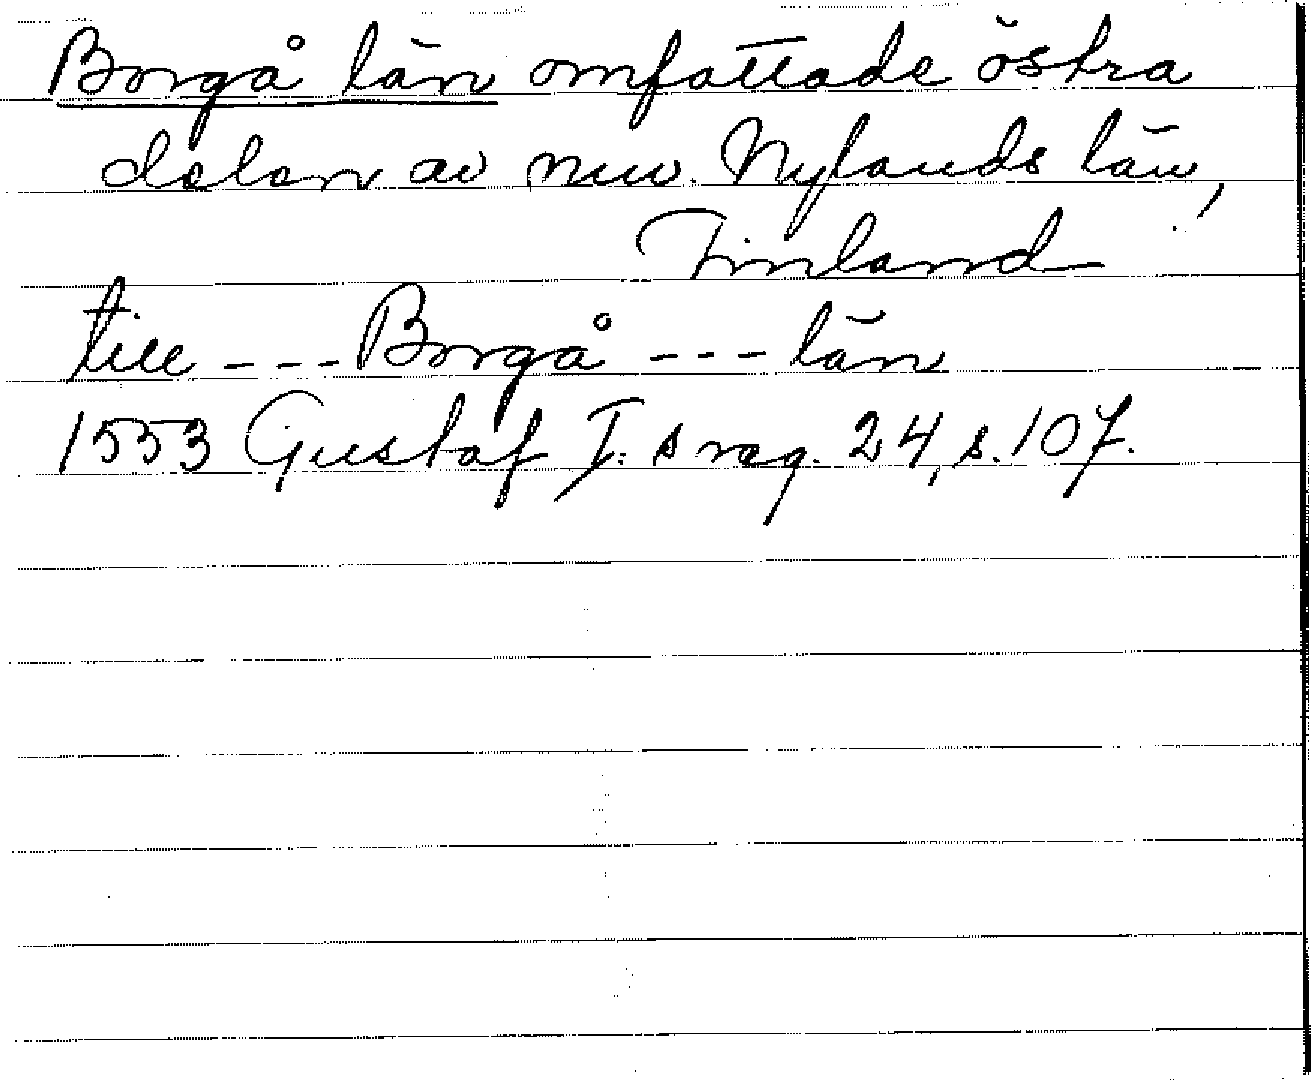 Borgå län omfattade östra
delen av nuv. Nylands län,
Finland
till --- Borgå --- län
1553 Gustaf I:s reg. 24, s. 107.